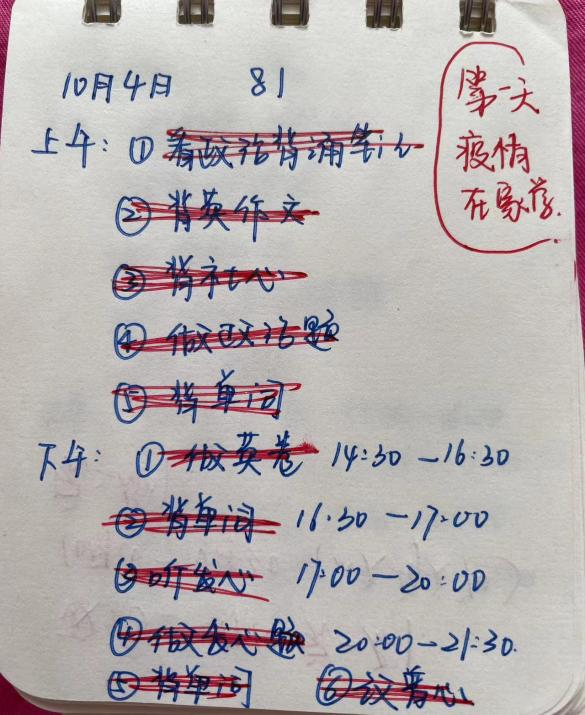 10月4日 81
第一天
疫情
在家学.
上午: ① 看政治背诵笔记
② 背英作文
③ 背社心
④ 做政治题
⑤ 背单词
下午: ① 做英卷 14:30 — 16:30
② 背单词 16:30 — 17:00
③ 听发心 17:00 — 20:00
④ 做发心题 20:00 — 21:30.
⑤ 背单词 ⑥ 普心